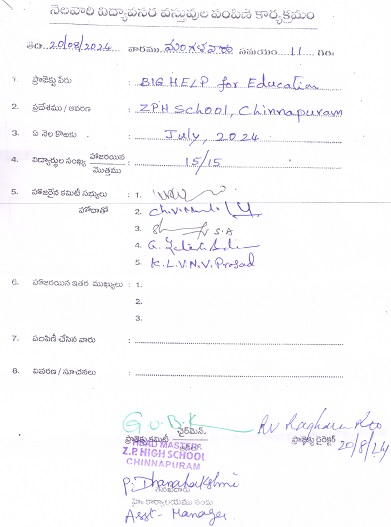 నెలవారి విద్యావసర వస్తువుల పంపిణి కార్యక్రమం
తేది: 20/08/2024 వారము మంగళవారం సమయం 11 గం॥
1. ప్రాజెక్టు పేరు : BIG HELP for Education
2. ప్రదేశము / ఆవరణ : ZPH School, Chinnapuram
3. ఏ నెల కొరకు : July, 2024
4. విద్యార్థుల సంఖ్య హాజరయిన / మొత్తము : 15/15
5. హాజరైన కమిటీ సభ్యులు : 1.
హోదాతో 2.
3. S.A
4.
5. K.L.V.N.V. Prasad
6. హాజరయిన ఇతర ముఖ్యులు : 1.
2.
3.
7. పంపిణీ చేసిన వారు :
8. వివరణ / సూచనలు :
G.O.B.K RV Raghava Rao
ప్రాజెక్టు కమిటీ చైర్మన్. ప్రాజెక్టు డైరెక్టర్ 20/8/24
HEAD MASTER
Z.P. HIGH SCHOOL
CHINNAPURAM
P. Dhanalakshmi
Asst-Manager.